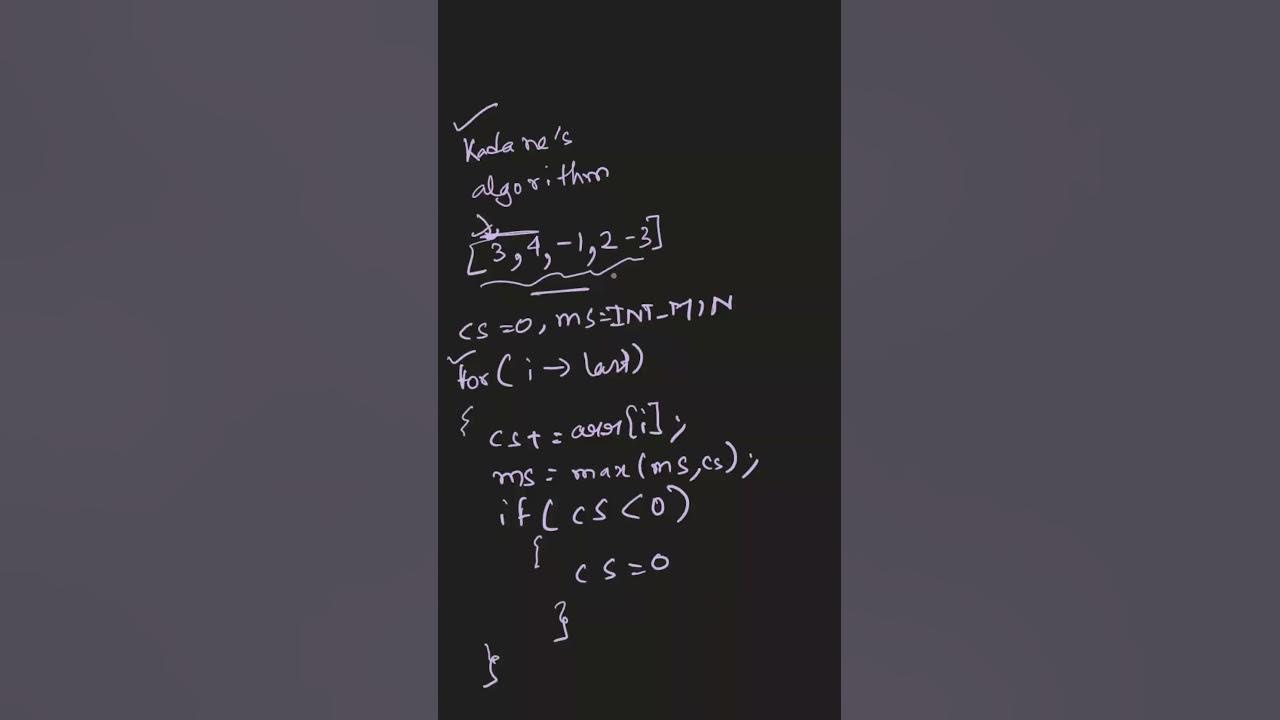 Kadane's
algorithm
[3,4,-1,2-3]
cs=0, ms=INT_MIN
for(i→last)
{
cs+=arr[i];
ms=max(ms,cs);
if(cs<0)
{
cs=0
}
}